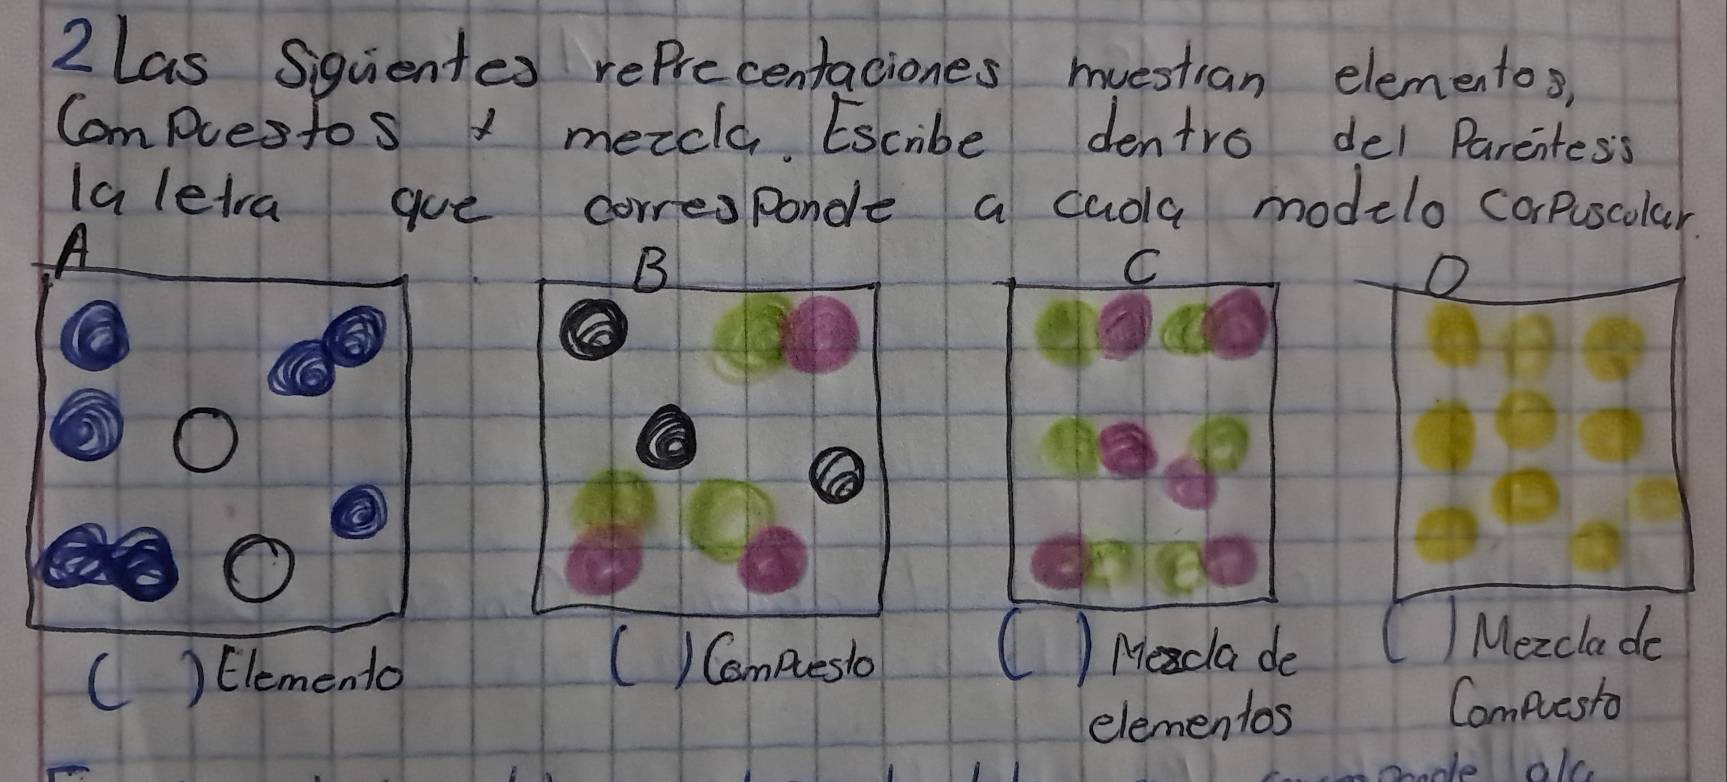 2 Las Sigüientes rePrecentaciones muestran elementos,
ComPuestos y mezcla. Escribe dentro del Paréntesis
la letra que corresPonde a cada modelo CorPuscular.
A B C D
( ) Elemento ( ) ComPuesto ( ) Mezcla de ( ) Mezcla de
elementos ComPuesto